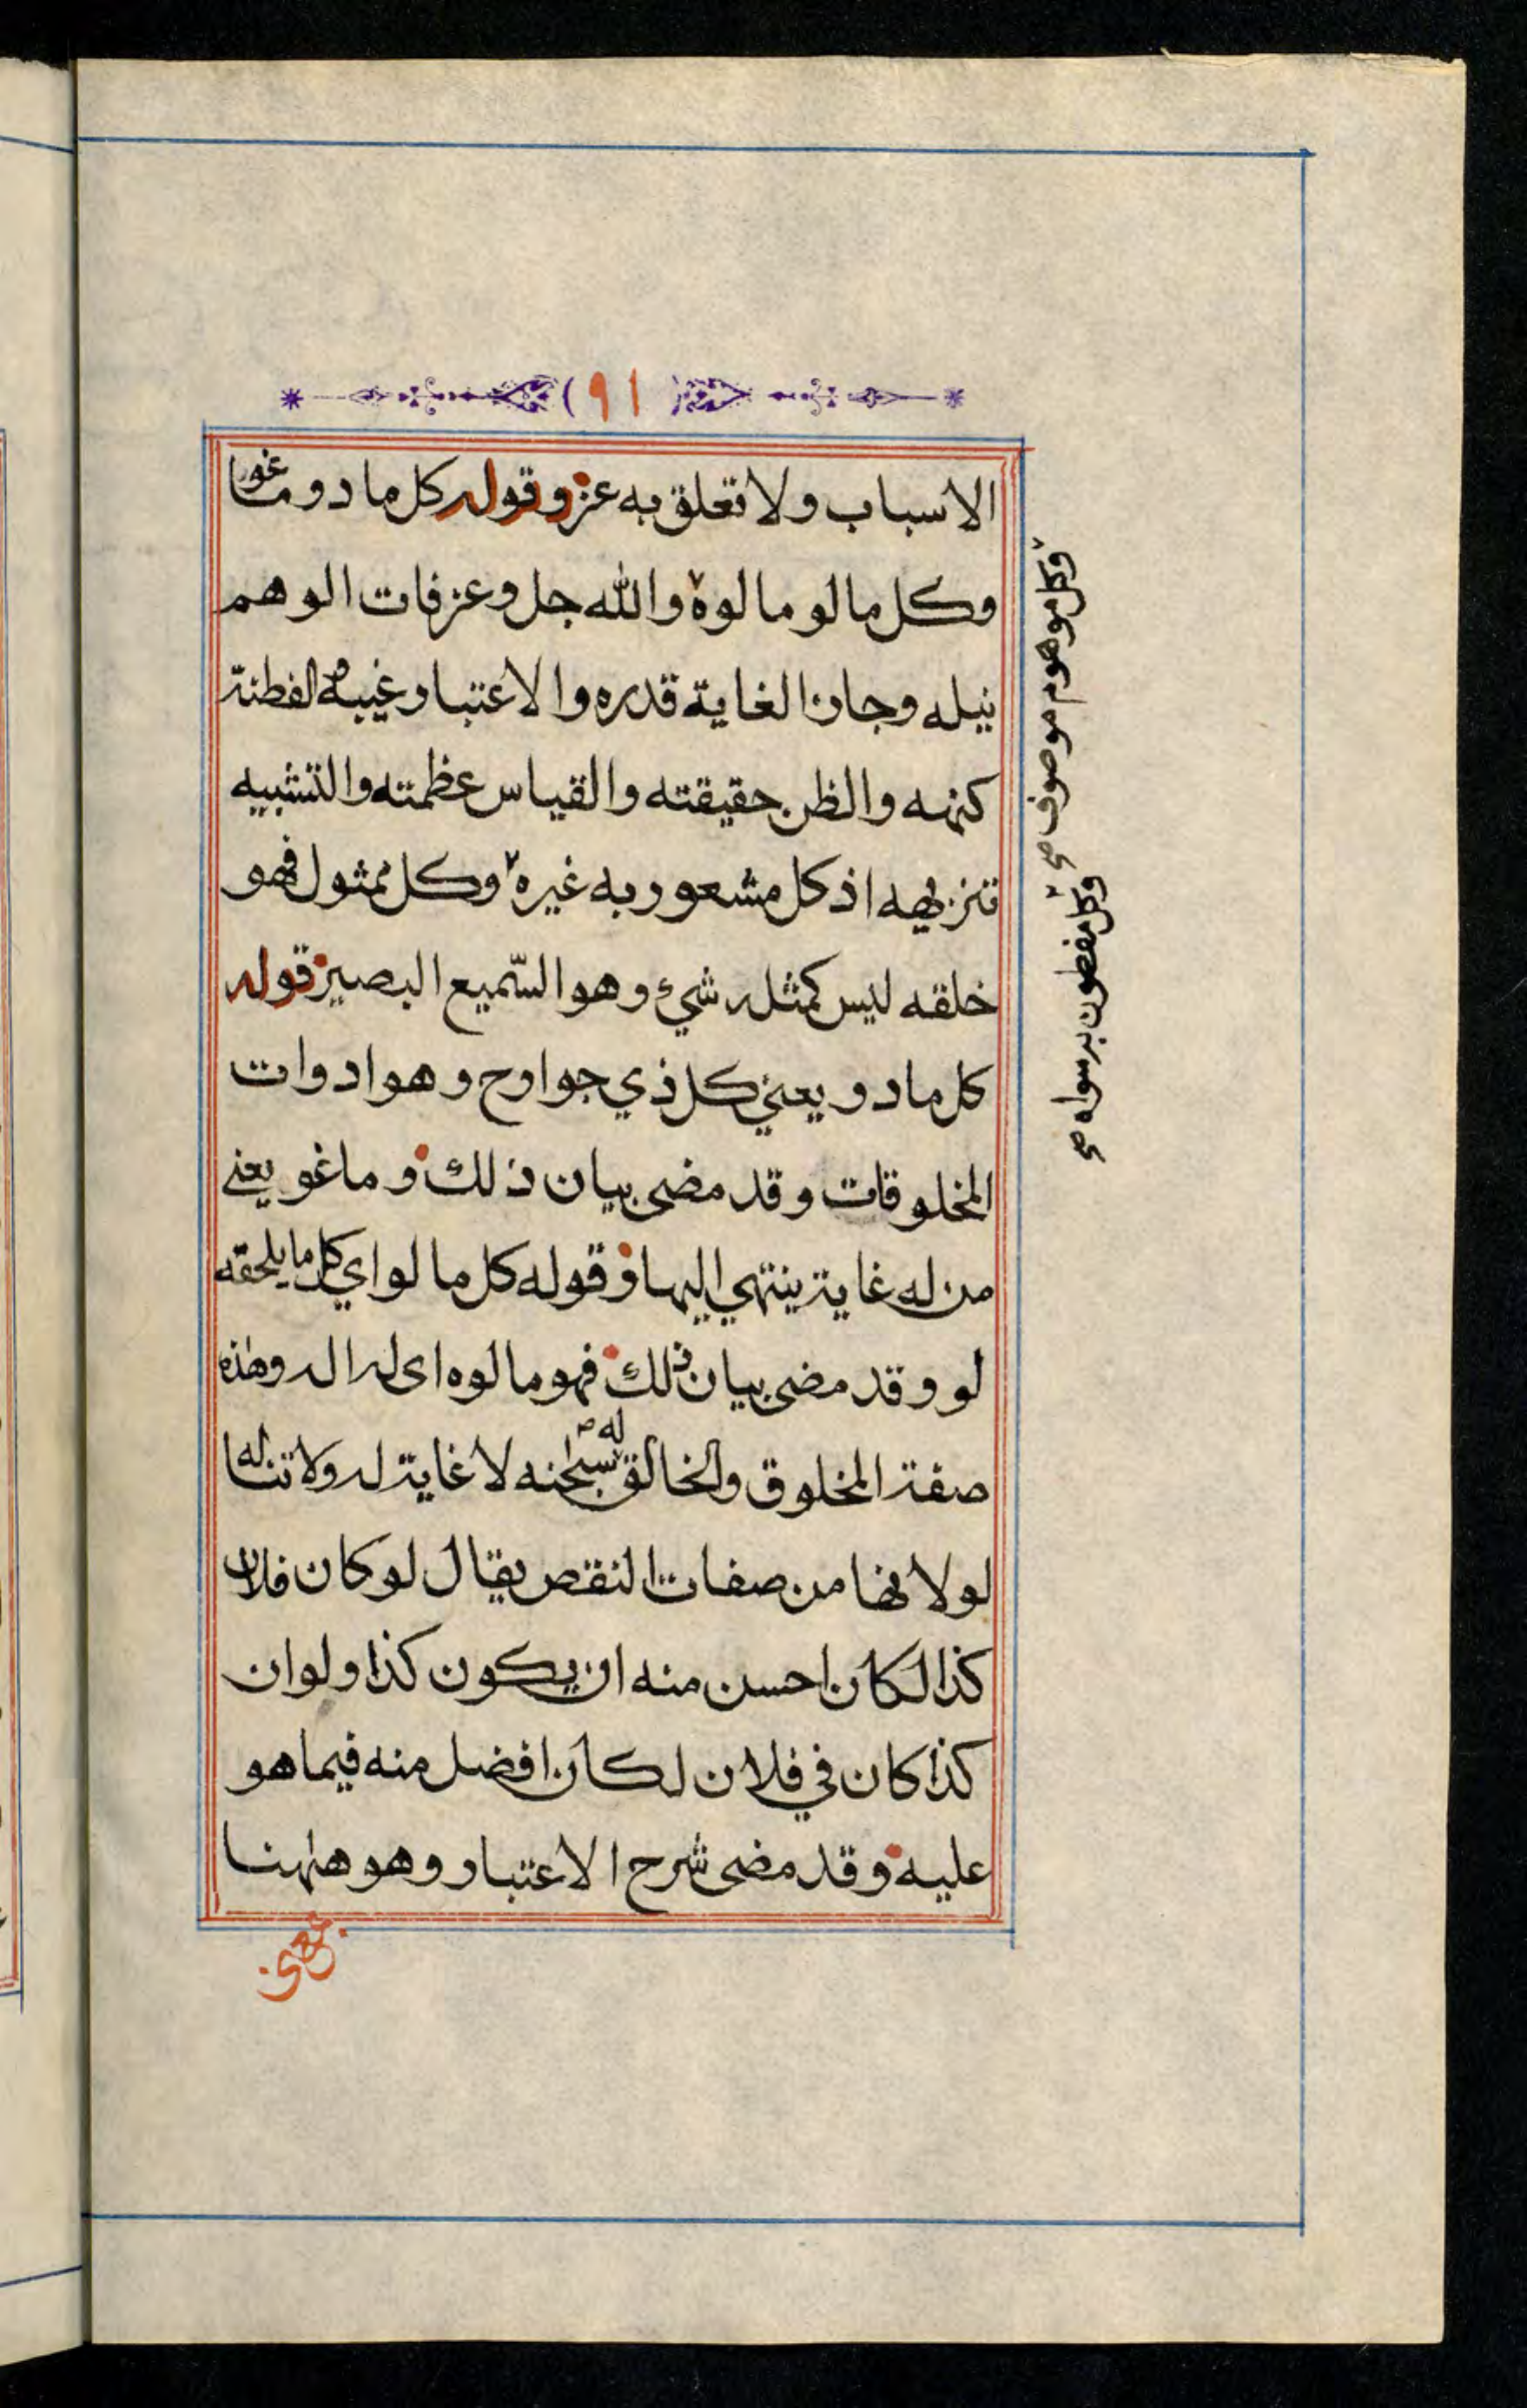 (٩١)
الاسباب ولا تعلق به عز وقوله كل ما دو وما غو
وكل ما لو مالوه والله جل وعز فات الوهم
نيله وجاز الغاية قدره والاعتبار غيبه والفطنة
كنهه والظن حقيقته والقياس عظمته والتشبيه
تنزيهه اذ كل مشعور به غيره وكل ممثول فهو
خلقه ليس كمثله شيء وهو السّميع البصير قوله
كل ما دو يعني كل ذي جوارح وهو ادوات
المخلوقات وقد مضى بيان ذلك وما غو يعني
من له غاية ينتهي اليها وقوله كل ما لو اي كل ما يلحقه
لو وقد مضى بيان ذلك فهو مالوه اى له اله وهذه
صفة المخلوق والخالق له سبحنه لا غاية له ولا تناله
لو لانها من صفات النقص يقال لو كان فلان
كذا لكان احسن منه ان يكون كذا ولو ان
كذا كان في فلان لكان افضل منه فيما هو
عليه وقد مضى شرح الاعتبار وهو هاهنا
وكل موهوم موصوف صح
وكل مفطون به سواه صح